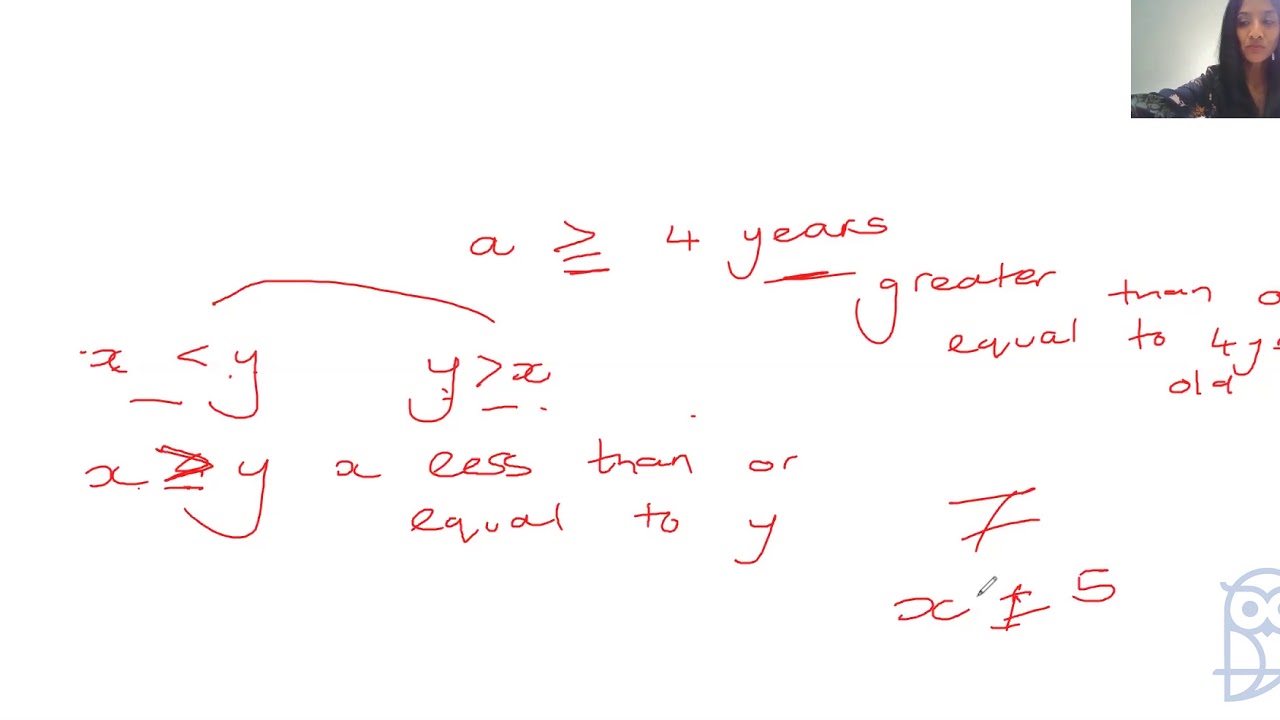 a ≥ 4 years
greater than o
equal to 4ys
old
x < y y > x
x ≥ y x less than or
equal to y
≠
x ≠ 5